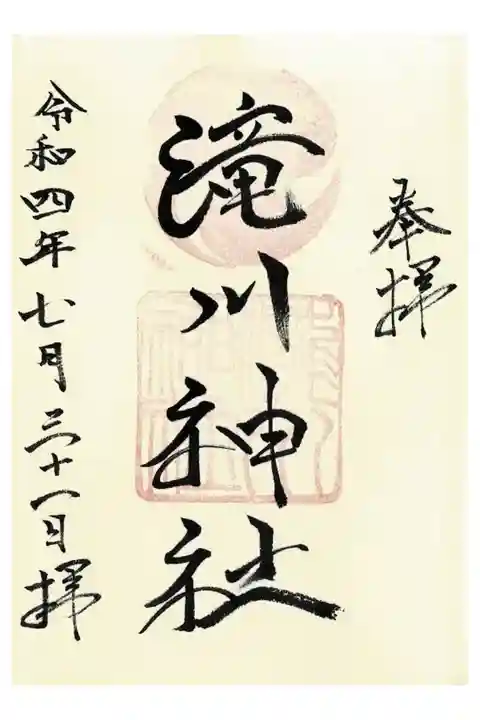 奉拝
滝川神社
令和四年七月三十一日拝